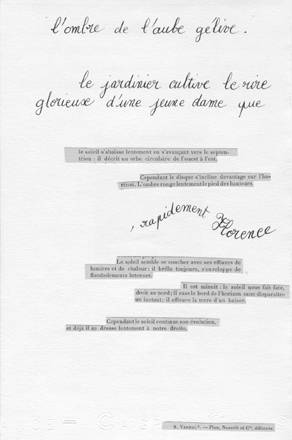 l'ombre de l'aube gélive.
le jardinier cultive le rire
glorieux d'une jeune dame que
le soleil s'abaisse lentement en s'avançant vers le septen-
trion : il décrit un orbe circulaire de l'ouest à l'est.
Cependant le disque s'incline davantage sur l'ho-
rizon. L'ombre ronge lentement le pied des hauteurs.
, rapidement Florence
Le soleil semble se coucher avec ses effluves de
lumière et de chaleur: il brille toujours, s'enveloppe de
flamboiements intenses.
Il est minuit : le soleil nous fait face,
droit au nord; il rase le bord de l'horizon sans disparaître
un instant; il effleure la terre d'un baiser.
Cependant le soleil continue son évolution,
et déjà il se dresse lentement à notre droite.
Plon, Nourrit et Cie, éditeurs.